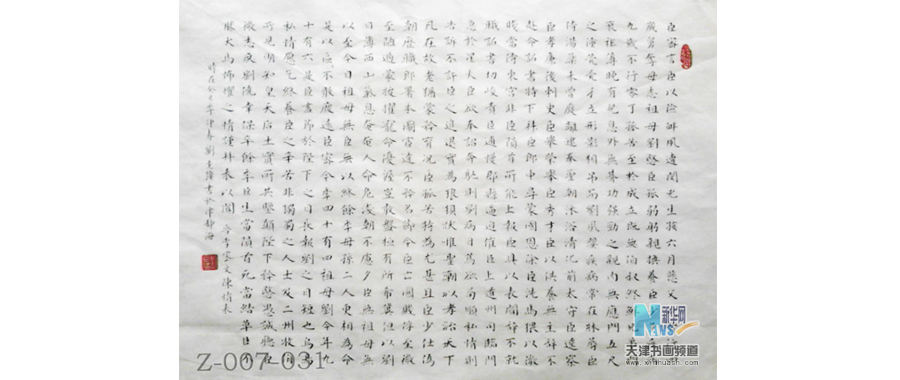 臣密言臣以險衅夙遭閔凶生孩六月慈父見背行年四
歲舅奪母志祖母劉愍臣孤弱躬親撫養臣少多疾病
九歲不行零丁孤苦至於成立既無伯叔終鮮兄弟門
衰祚薄晚有兒息外無朞功強近之親內無應門五尺
之僮煢煢孑立形影相弔而劉夙嬰疾病常在牀蓐臣
侍湯藥未嘗廢離逮奉聖朝沐浴清化前太守臣逵察
臣孝廉後刺史臣榮舉臣秀才臣以供養無主辭不
赴命詔書特下拜臣郎中尋蒙國恩除臣洗馬猥以微
賤當侍東宮非臣隕首所能上報臣具以表聞辭不就
職詔書切峻責臣逋慢郡縣逼迫催臣上道州司臨門
急於星火臣欲奉詔奔馳則劉病日篤欲苟順私情則
告訴不許臣之進退實為狼狽伏惟聖朝以孝治天下
凡在故老猶蒙矜育況臣孤苦特為尤甚且臣少仕偽
朝歷職郎署本圖宦達不矜名節今臣亡國賤俘至微
至陋過蒙拔擢寵命優渥豈敢盤桓有所希冀但以劉
日薄西山氣息奄奄人命危淺朝不慮夕臣無祖母無
以至今日祖母無臣無以終餘年母孫二人更相為命
是以區區不敢廢遠臣密今年四十有四祖母劉今年九
十有六是臣盡節於陛下之日長報劉之日短也烏鳥
私情願乞終養臣之辛苦非獨蜀之人士及二州牧伯
所見明知皇天后土實所共鑒願陛下矜愍愚誠聽臣
微志庶劉僥倖保卒餘年臣生當隕首死當結草臣不
勝犬馬怖懼之情謹拜表以聞 晉李密文陳情表
書於津靜海
Z-007-031
新华网
News
天津书画频道
www.xinhuanet.com